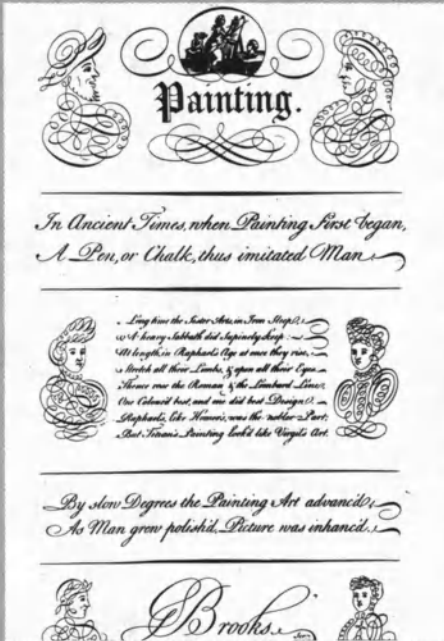 Painting.
In Ancient Times, when Painting first began,
A Pen, or Chalk, thus imitated Man
Long time the Sister Arts, in Iron Sleep,
A heavy Sabbath did supinely keep:
At length, in Raphael's Age at once they rise,
Stretch all their Limbs, & open all their Eyes.
Thence rose the Roman & the Lombard Line;
One Colour'd best, and one did best Design.
Raphael's, like Homer's, was the nobler Part;
But Titian's Painting look'd like Virgil's Art.
By slow Degrees the Painting Art advanc'd,
As Man grew polish'd, Picture was inhanc'd.
Brooks